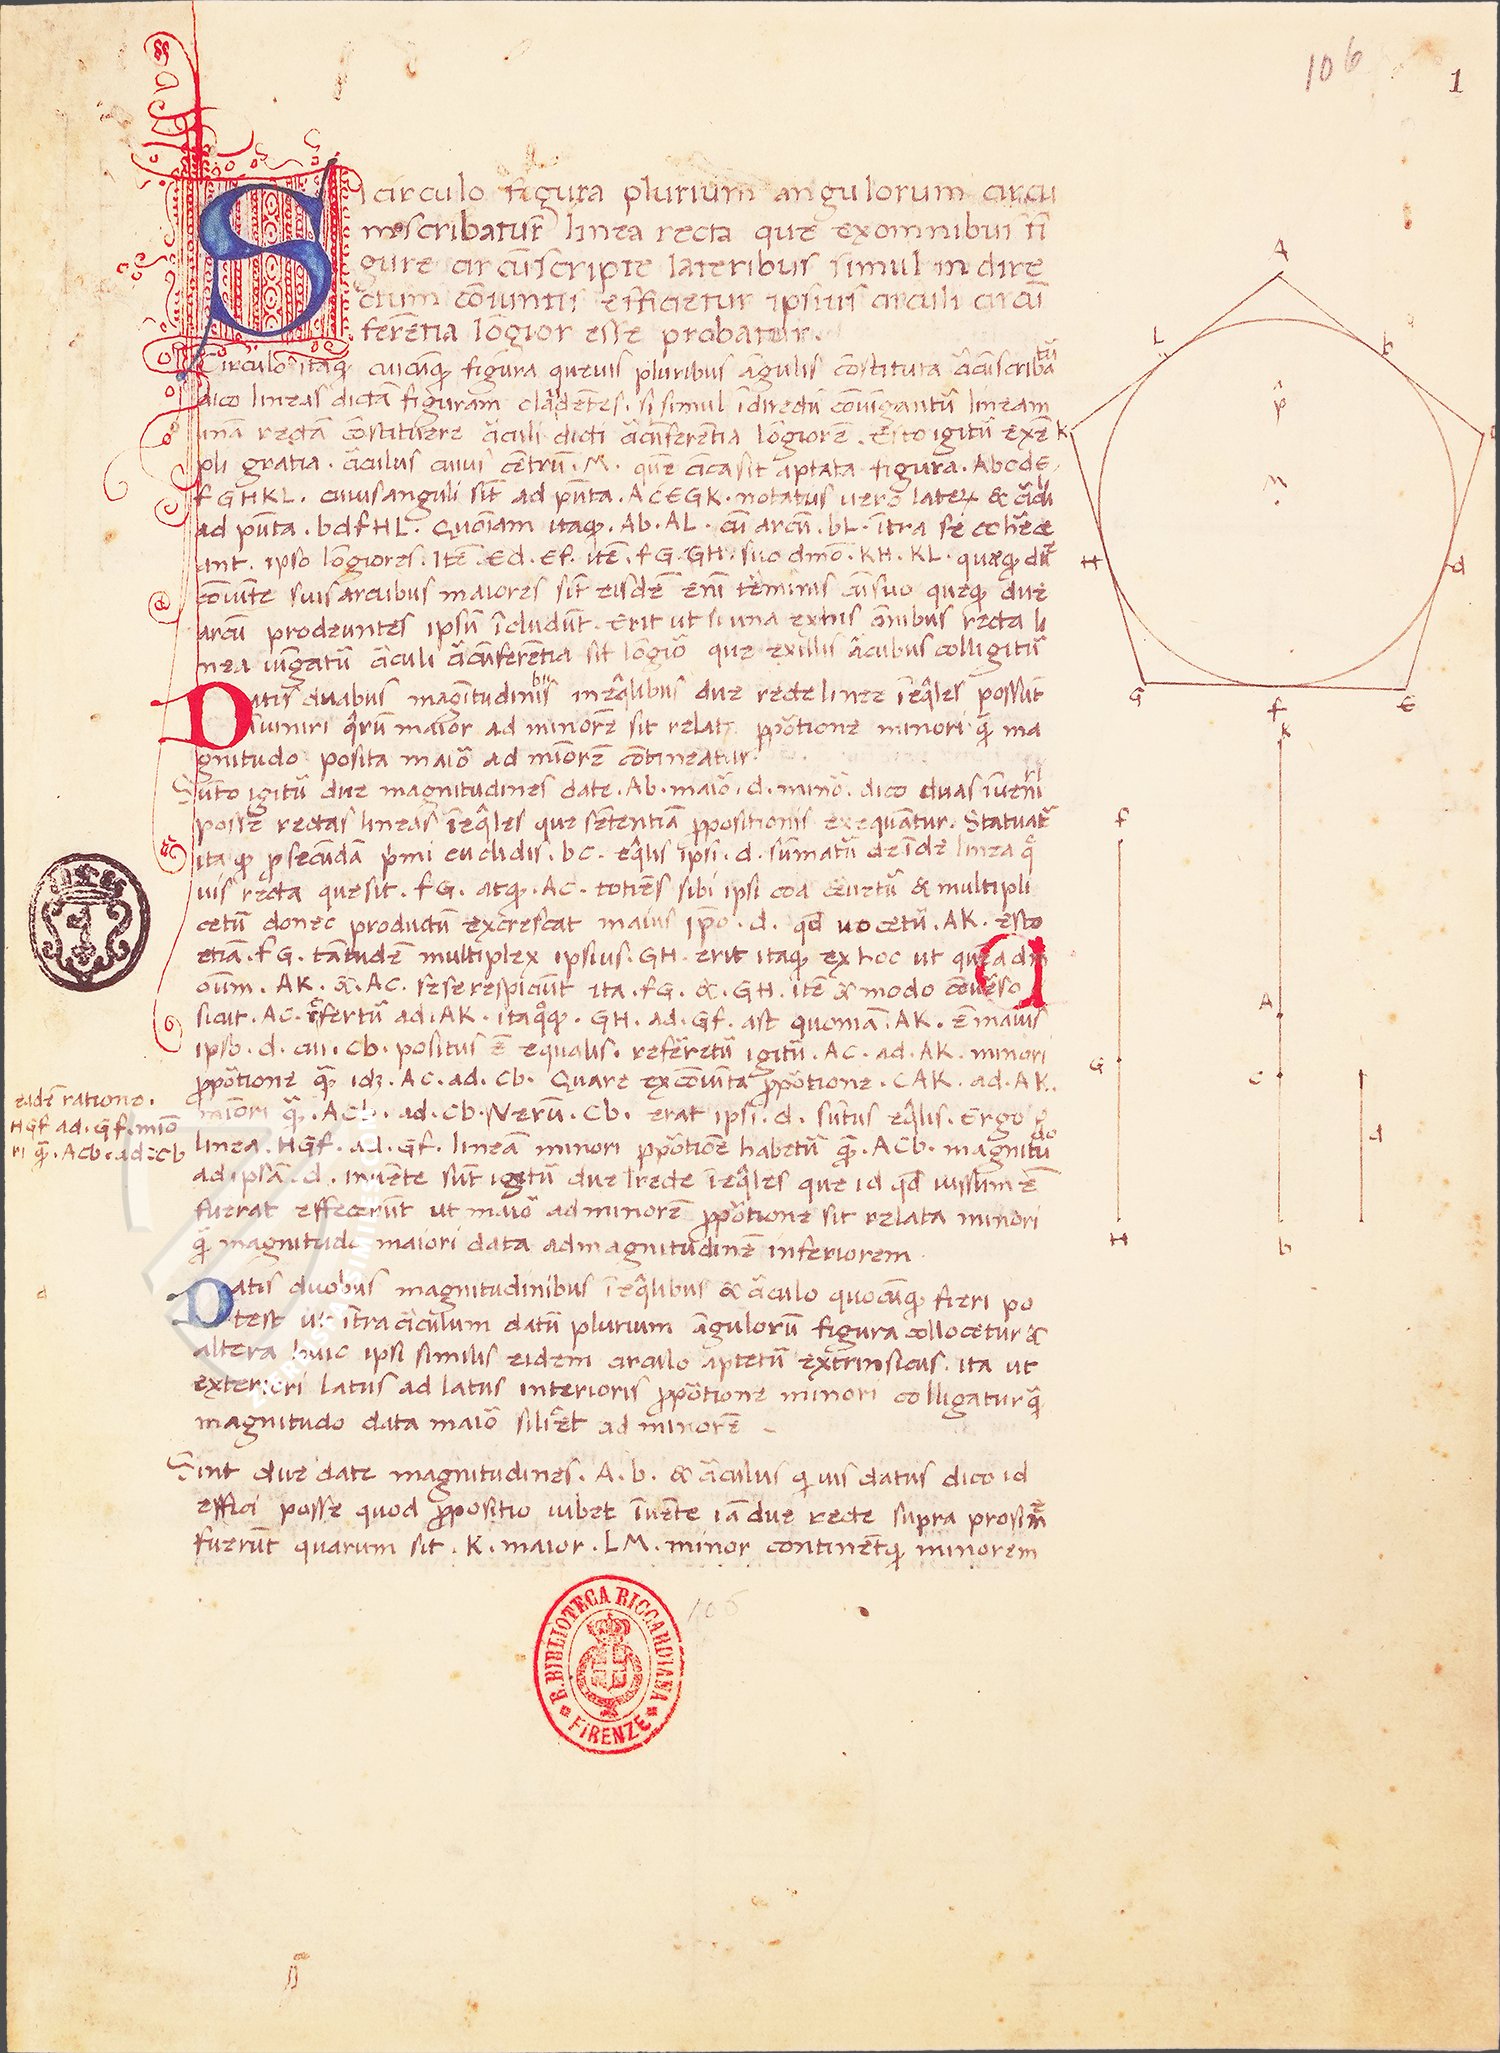 106
1
Si circulo figura plurium angulorum circu
mscribatur linea recta que ex omnibus fi
gure circūscripte lateribus simul in dire
ctum cōiunctis efficietur ipsius circuli circū
ferētia lōgior esse probatur.
Circulo itaq cuicūq figura quevis pluribus āgulis cōstituta c̄cūscriba tū
dico lineas dictā figuram claudētes. si simul ī directū cōiūgantū lineam
unā rectā cōstituere c̄culi dicti c̄cūferētia lōgiorē. Esto igitū exē
pli gratia. c̄culus cuius cētrū. M. quē circa sit aptata figura. AbcdE,
fGHKL. cuius anguli sīt ad pūta. ACEGK. notatus vero later &
ad pūta. bdfHL. Quoniam itaq. Ab. AL. cū arcū. bL. ītra se
ant. ipso lōgiores. Itē. Ed. Ef. itē. fG. GH. suo dmō. KH. KL. queq due
cōiūcte suis arcubus maiores sīt eisdē enī terminis cū suo queq due
arcū prodeuntes ipsū īcludūt. Erit ut si una ex his ōnibus recta li
nea iūgatū c̄culi c̄cūferētia sit lōgior que ex illis arcubus colligitū
Datis duabus magitudinis bu ineqlibus due recte linee īeqles possūt
īveniri qrū maior ad minorē sit relata ppōtione minori q̄ ma
gnitudo posita maior ad miorē cōtineatur.
Sūto igitū due magnitudines date. Ab. maior. d. minor. dico duas īveniri
posse rectas lineas īeqles que sētentiā ppositionis exequātur. Statuat
itaq p secūdā pmi euclidis. bc. eqlis ipsi. d. sūmatū deīde linea q
vis recta que sit. fG. atq. AC. totiēs sibi ipsi coacervetū & multipli
cetū donec productū excrescat maius ipso. d. qd vocetū. AK. esto
etiā. fG. tātudē multiplex ipsius. GH. erit itaq ex hoc ut quē ad m
oūm. AK. &. AC. sese respiciūt ita. fG. &. GH. itē & modo cōverso
sicut. AC. refertū ad. AK. itaqq. GH. ad. Gf. ast quoniam. AK. ē maius
ipso. d. cui. Cb. positus ē equalis. referetū igitū. AC. ad. AK. minori
ppōtione q̄ id. AC. ad. Cb. Quare ex cōiūcta ppōtione. CAK. ad. AK.
maiori q̄. ACb. ad. Cb. Verū. Cb. erat ipsi. d. sūtus eqlis. Ergo
linea. HGf. ad. Gf. lineam minori ppōtionē habetū q̄. ACb. magnitu do
ad ipsā. d. invēte sūt igitū due recte īeqles que id qd iussum ē
fuerat effecerūt ut maior ad minorē ppōtione sit relata minori
q̄ magnitudo maiori data ad magnitudinē inferiorem.
eidē ratione.
HGf ad. Gf. mio
ri q̄. ACb. ad. Cb
Datis duobus magnitudinibus īeqlibus & c̄culo quocūq fieri po
test ut ītra circulum datū plurium āgulorū figura collocetur &
altera huic ipsi similis eidem circulo aptetū extrinsicus. ita ut
exteriori latus ad latus interioris ppōtione minori colligatur q̄
magnitudo data maior ad minorē
Sint due date magnitudines. A. b. & c̄culus quis datus dico id
effici posse quod ppositio iubet īvēte iā due recte supra
fuerūt quarum sit. K. maior. LM. minor continētq minorem
A
L
b
K
c
p
M
H
d
G
f
E
f
G
H
k
A
c
b
d
R. BIBLIOTECA RICCARDIANA
FIRENZE
106